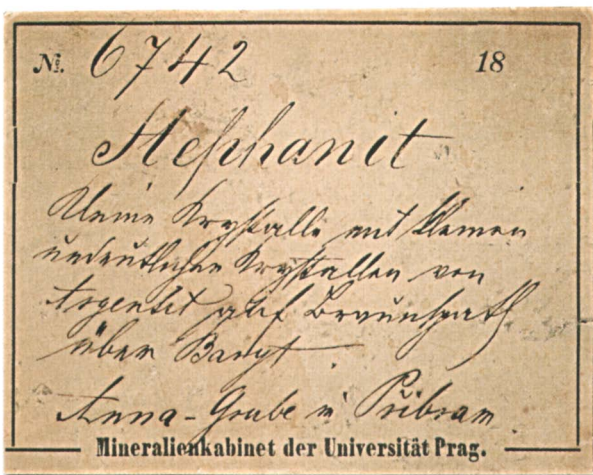 №. 6742 18
Stephanit
Kleine Krystalle mit kleinen
undeutlichen Krystallen von
Argentit auf Braunspath
über Baryt.
Anna-Grube in Přibram
Mineralienkabinet der Universität Prag.